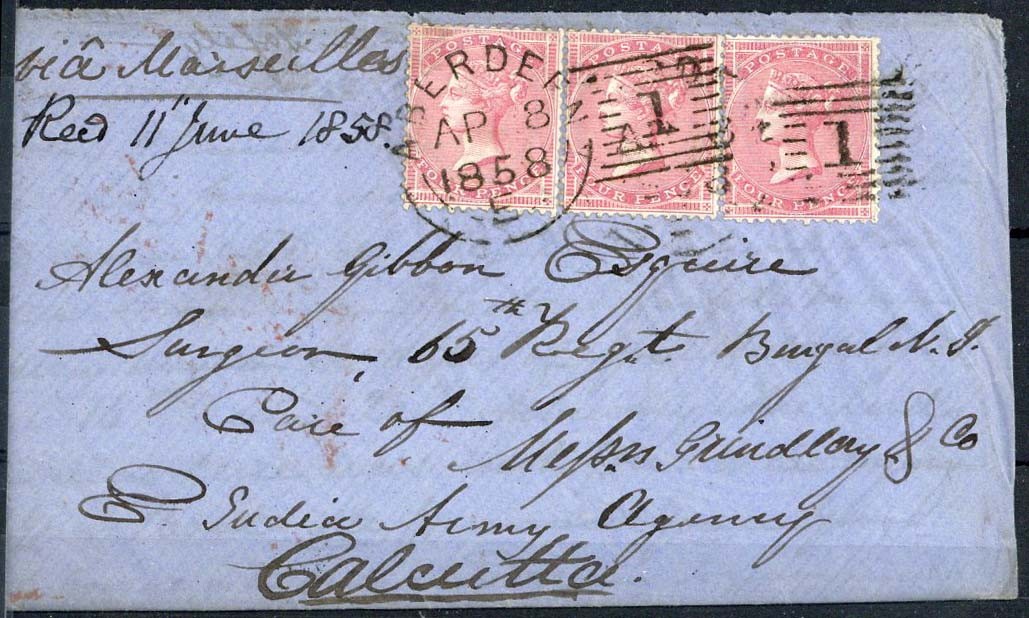 viâ Marseilles
Recd 11th June 1858.
POSTAGE POSTAGE POSTAGE
FOUR PENCE FOUR PENCE FOUR PENCE
ABERDEEN
AP 8
1858
E
1
1
Alexander Gibbon Esquire
Surgeon, 65th Regt. Bengal N. I.
Care of Messrs Grindlay & Co
E. India Army Agency
Calcutta.